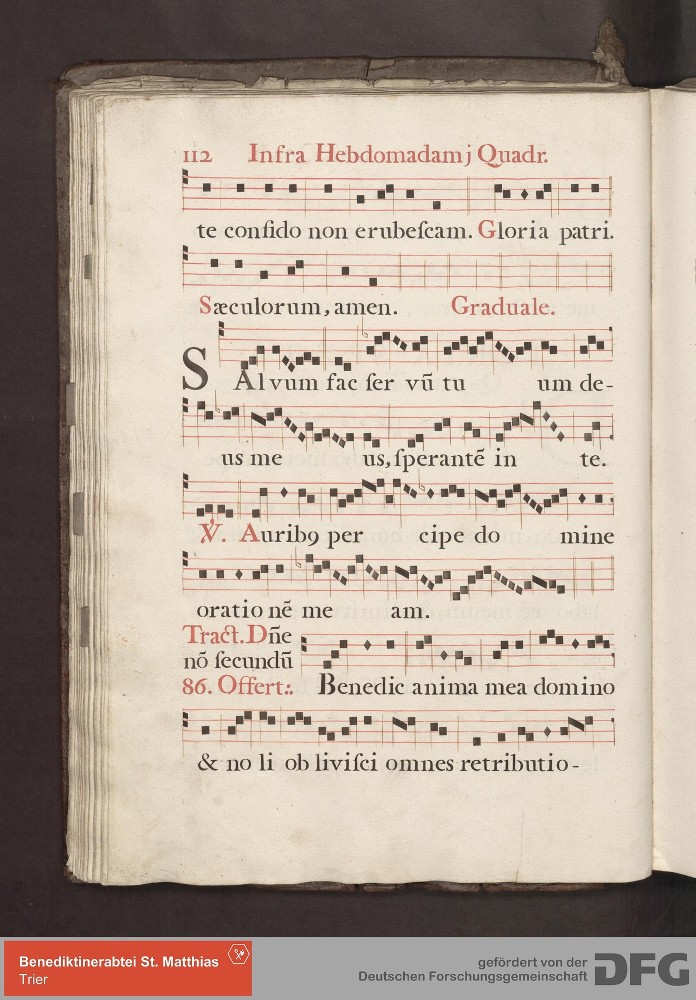 112 Infra Hebdomadam j Quadr.
te confido non erubeſcam. Gloria patri.
Sæculorum, amen. Graduale.
SAlvum fac ſer vū tu um de-
us me us, ſperantē in te.
℣. Auribꝯ per cipe do mine
oratio nē me am.
Tract. Dn̄e
nō ſecundū
86. Offert:. Benedic anima mea domino
& no li ob liviſci omnes retributio-
Benediktinerabtei St. Matthias
Trier
gefördert von der
Deutschen Forschungsgemeinschaft
DFG